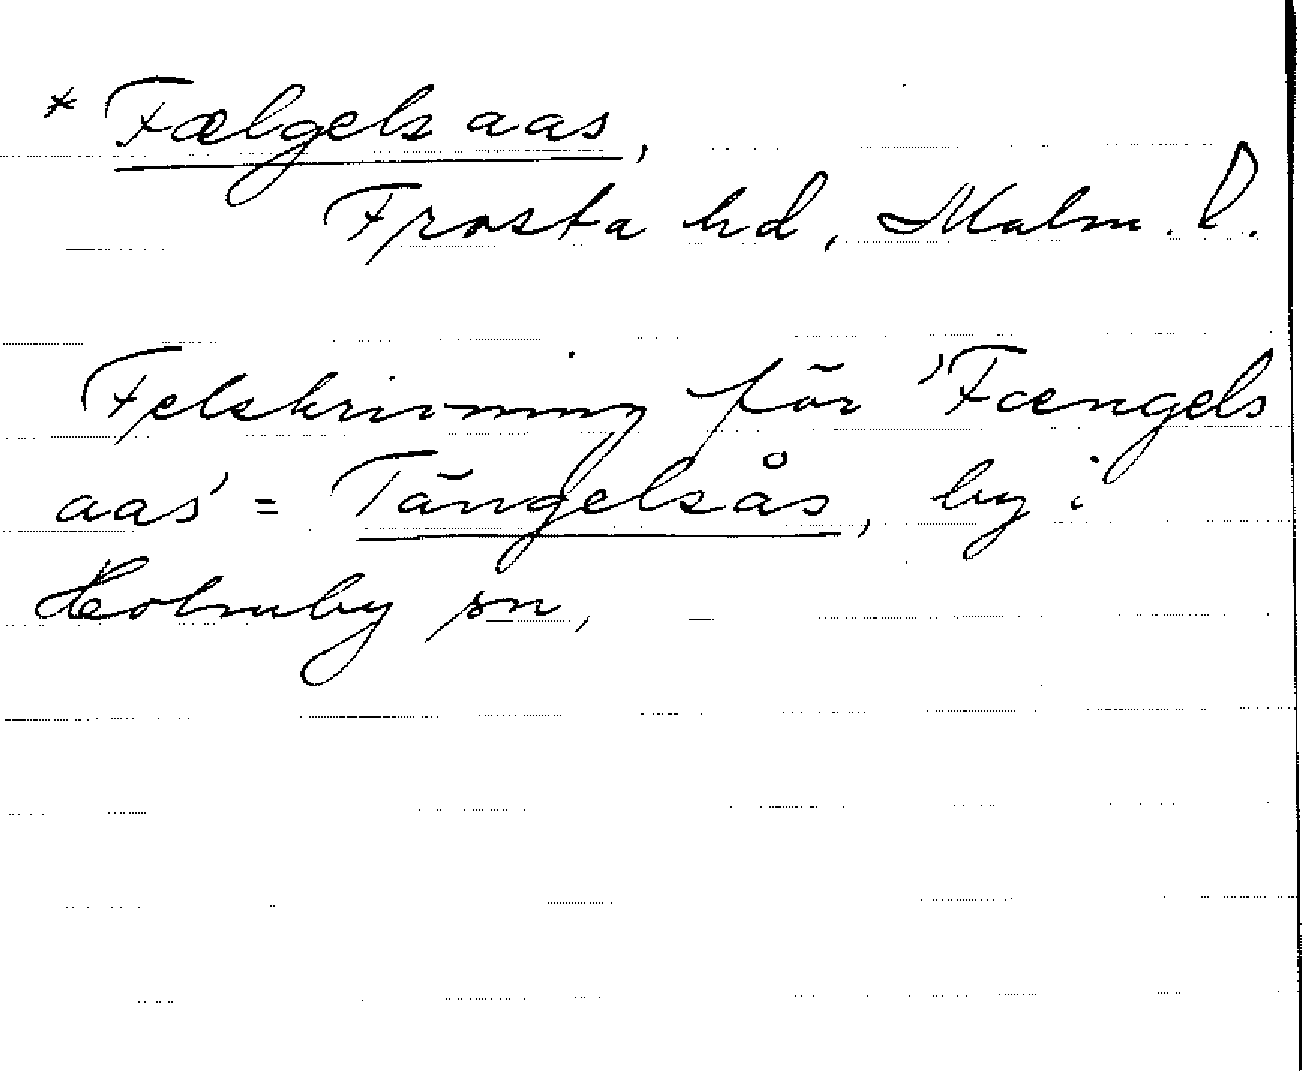 * Fælgels aas,
Frosta hd, Malm. l.
Felskrivning för 'Fængels
aas' = Tängelsås, by i
Holmby sn,